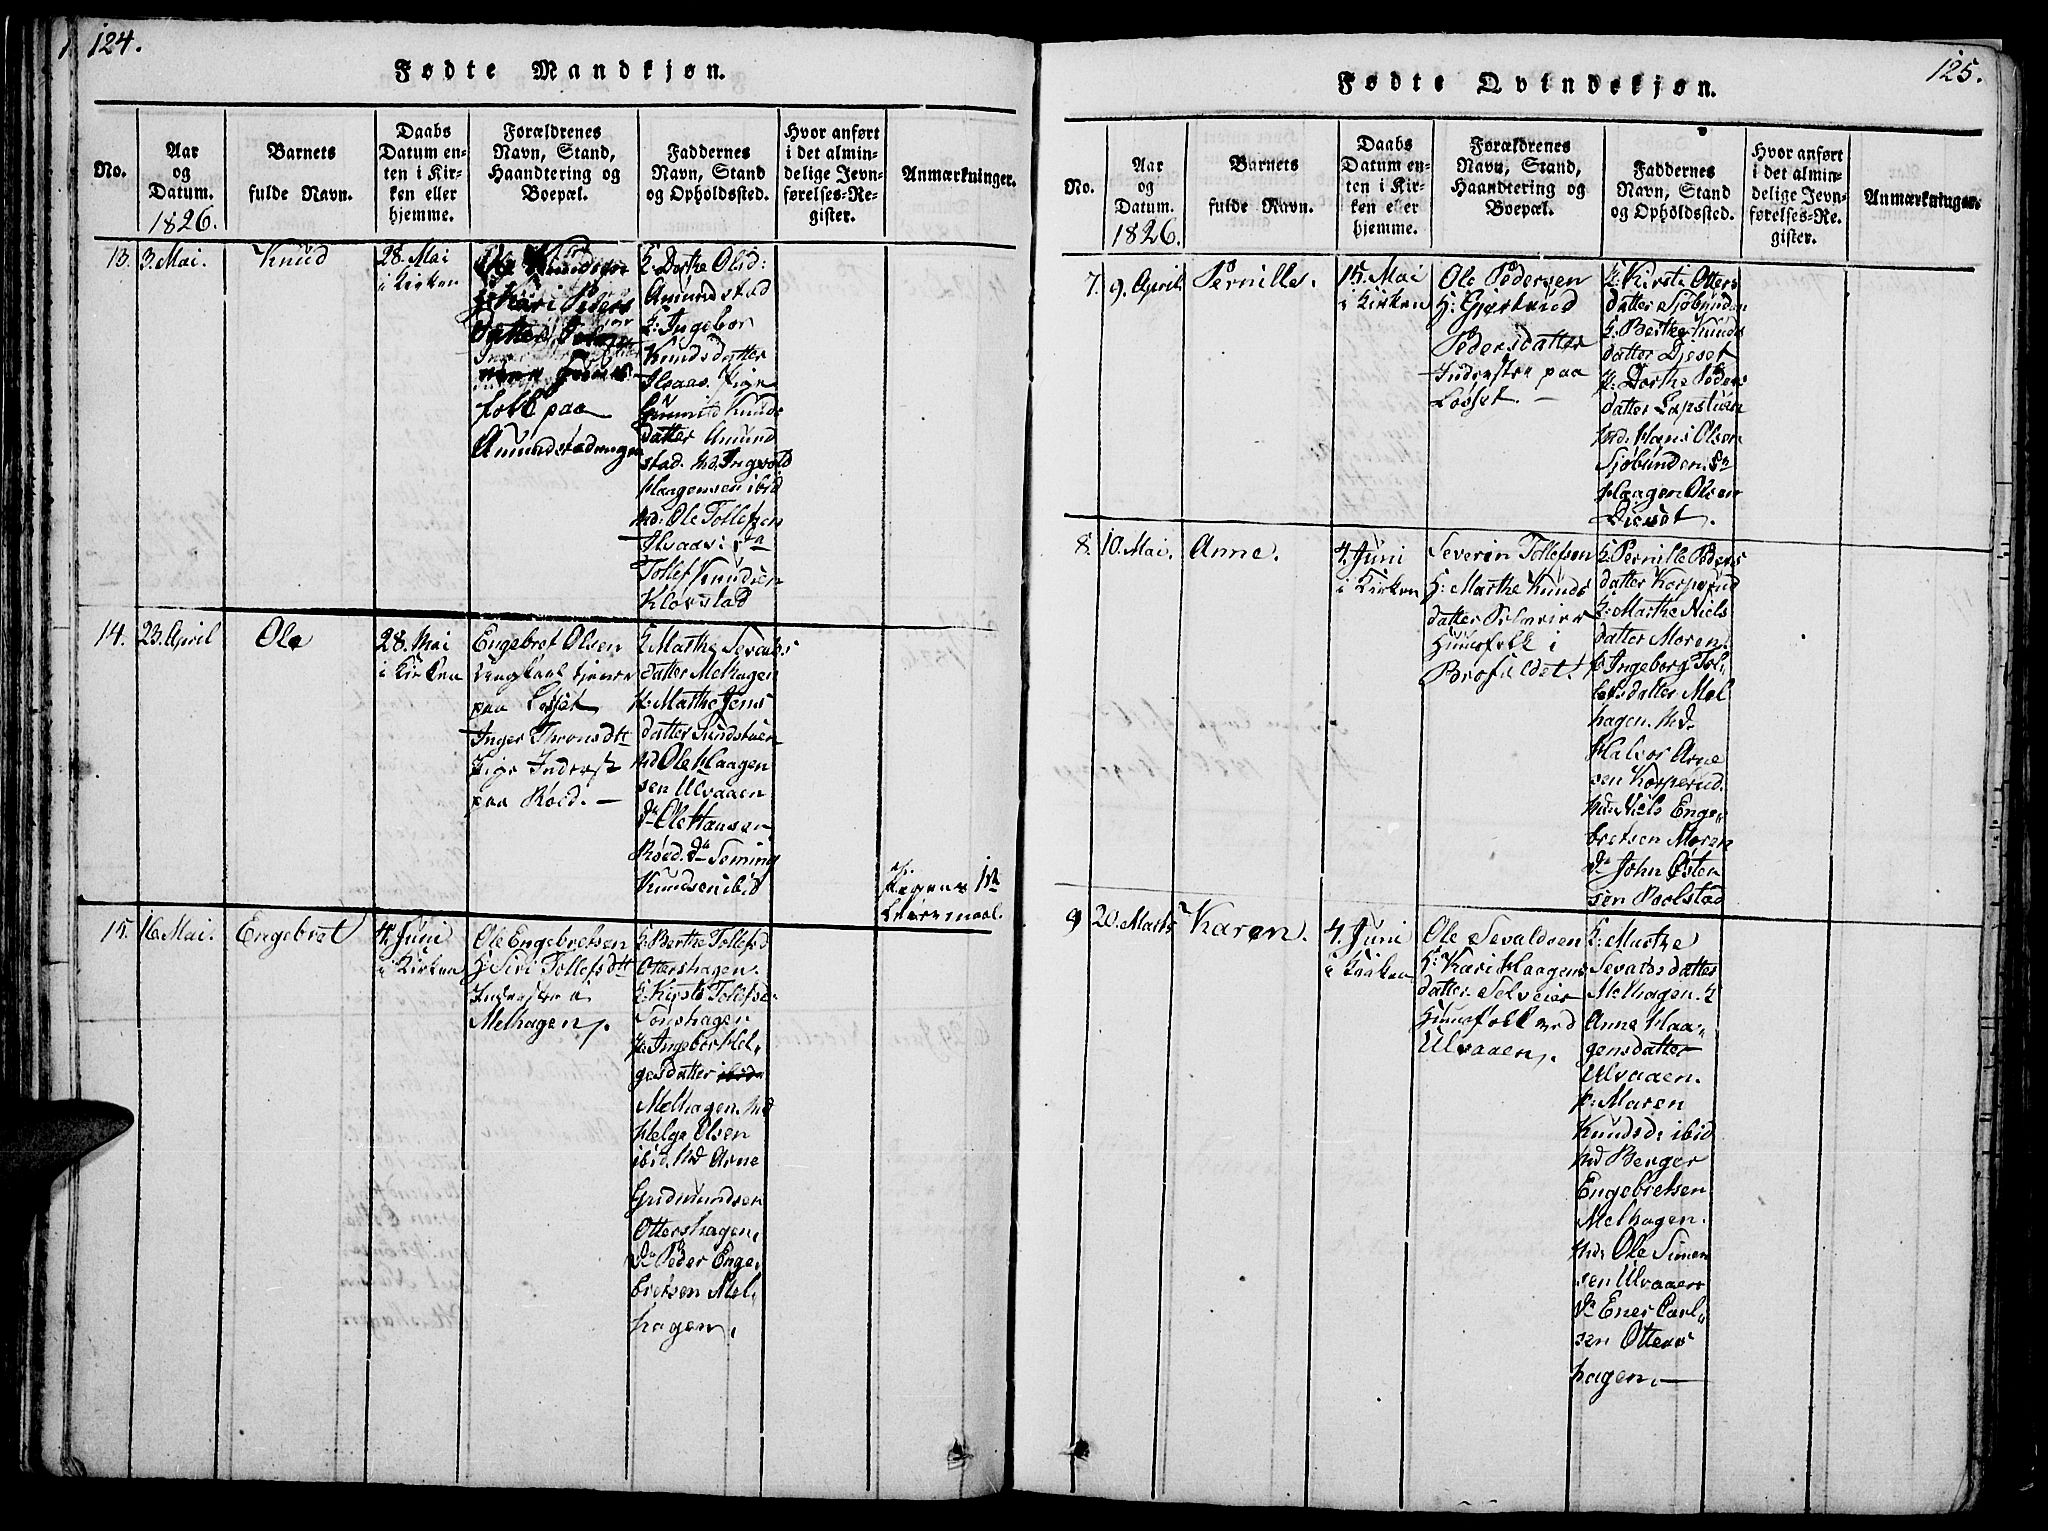 124.
Fødte Mandkjøn.
No.
Aar
og
Datum.
1826.
Barnets
fulde Navn.
Daabs
Datum en-
ten i Kir-
ken eller
hjemme.
Forældrenes
Navn, Stand,
Haandtering og
Boepæl.
Faddernes
Navn, Stand
og Opholdssted.
Hvor anført
i det almin-
delige Jevn-
førelses-Re-
gister.
Anmærkninger.
13.
3. Mai.
Knud
28. Mai
i Kirken
Ole Knudsen
Kari Peders
datter
folk paa
Amundstadengen
K: Dorthe Olsd:
Amundstad
K: Ingebor
Knudsdatter
Pige
Gunnild Knuds
datter Amund
stad. Md. Ingvold
Haagensen ibid
Md: Ole Tollefsen
Tollef Knudsen
Kløvstad
14.
23. April
Ole
28. Mai
i Kirken
Engebret Olsen
Ungkarl tjener
paa Løsset
Inger Thronsdtt
Pige Inderst
paa Røed. —
K: Marthe Sevalds
datter Melhagen
K: Marthe Jens
datter Sundstuen
Md Ole Haagen
sen Ulvaaen
Do Ole Hansen
Røed. Do Seming
Knudsen ibid
Leiermaal.
15.
16. Mai.
Engebret
4. Juni
i Kirken
Ole Engebretsen
H Siri Tollefsdtt
Inderster i
Melhagen.
K: Berthe Tollefsd
Ottershagen.
K: Kirsti Tollefsd
Sønshagen
P: Ingebor Hel-
gesdatter ibid
Melhagen. Md
Helge Olsen
ibid. Md Arne
Gudmundsen
Ottershagen.
Do Peder Enge-
bretsen Mel-
hagen.
125.
Fødte Qvindekjøn.
No.
Aar
og
Datum.
1826.
Barnets
fulde Navn.
Daabs
Datum en-
ten i Kir-
ken eller
hjemme.
Forældrenes
Navn, Stand,
Haandtering og
Boepæl.
Faddernes
Navn, Stand
og Opholdssted.
Hvor anført
i det almin-
delige Jevn-
førelses-Re-
gister.
Anmærkninger.
7.
9. April
Pernille.
15. Mai
i Kirken
Ole Pedersen
H: Gjertrud
Pedersdatter
Inderster paa
Løsset. —
K: Kirsti Otters
datter Sjøbunden
K: Berthe Knuds
datter Dieset
P: Dorthe Peders
datter Løpstuen
Md. Hans Olsen
Sjøbunden. Do
Haagen Olsen
Dieset.
8.
10. Mai.
Anne.
4. Juni
i Kirken
Severin Tollefsen
H: Marthe Knuds
datter Selveier
Huusfolk i
Brofaldet.
K: Pernille Peders
datter Korperud
K: Marthe Niels
datter Moren.
P: Ingeborg Tol-
lefsdatter Mel
hagen. Md.
Halvor Arne
sen Korperud.
Md: Niels Enge-
bretsen Moren
Do John Øster
sen Poolstad
9
20. Marts
Karen.
4. Juni
i Kirken
Ole Sevaldsen
H: Kari Haagens
datter Selveier
Huusfolk ved
Ulvaaen.
K: Marthe
Sevaldsdatter
Melhagen. K
Anne Haa-
gensdatter
Ulvaaen.
P: Maren
Knudsd: ibid
Md Berger
Engebretsen
Melhagen.
Md: Ole Simen
sen Ulvaaen
Do Ener Carl-
sen Otters
hagen. —